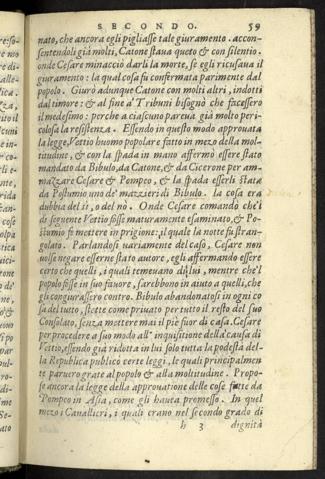 SECONDO. 59
nato, che ancora egli pigliasse tale giuramento. accon-
sentendoli già molti, Catone staua queto & con silentio.
onde Cesare minacciò darli la morte, se egli ricusaua il
giuramento: la qual cosa fu confermata parimente dal
popolo. Giurò adunque Catone con molti altri, indotti
dal timore: & al fine a' Tribuni bisognò che facessero
il medesimo: perche a ciascuno pareua già molto peri-
colosa la resistenza. Essendo in questo modo approuata
la legge, Vettio huomo popolare fatto in mezo della mol-
titudine, & con la spada in mano affermò essere stato
mandato da Bibulo, da Catone, & da Cicerone per am-
mazzare Cesare & Pompeo, & la spada esserli stata
da Postumio uno de' mazzieri di Bibulo. la cosa era
dubbia del sì, o del nò. Onde Cesare comandò che'l
dì seguente Vettio fosse maturamente esaminato, & Po-
stumio fù mettere in prigione: il quale la notte fu stran-
golato. Parlandosi uariamente del caso, Cesare non
uolse negare esserne stato autore, egli affermando essere
certo che quelli, i quali temeuano di lui, mentre che'l
popolo fosse in suo fauore, sarebbono in aiuto a quelli, che
gli congiurassero contro. Bibulo abandonatosi in ogni co
sa del tutto, stette come priuato per tutto il resto del suo
Consolato, senza mettere mai il piè fuor di casa. Cesare
per procedere a suo modo all' inquisitione della causa di
Vettio, essendo già ridotta in lui solo tutta la podestà del-
la Republica publicò certe leggi, le quali principalmen-
te paruero grate al popolo & alla moltitudine. Propo-
se ancora la legge della approuatione delle cose fatte da
Pompeo in Asia, come gli haueа promesso. In quel
mezo i Cauallieri, i quali erano nel secondo grado di
h 3 dignità